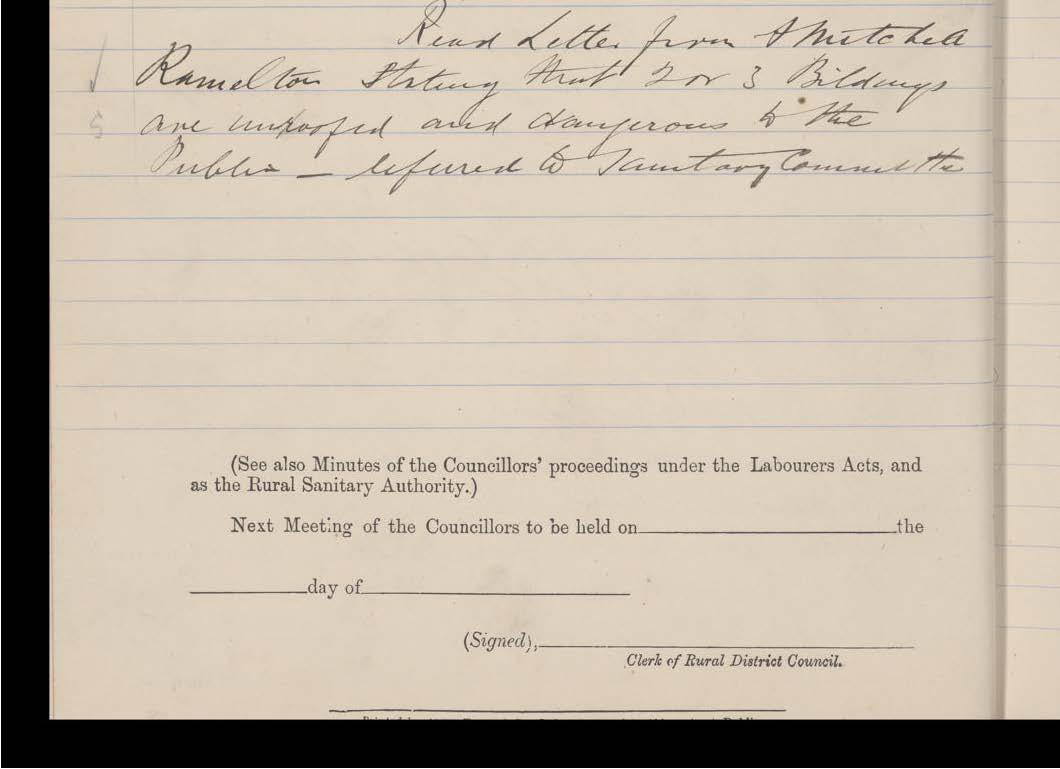 Read Letter from A Mitchell
Ramelton Stating that 2 or 3 Bildings
are unroofed and dangerous to the
Public — referred to Sanitary Committee
(See also Minutes of the Councillors' proceedings under the Labourers Acts, and
as the Rural Sanitary Authority.)
Next Meeting of the Councillors to be held on the
day of
(Signed),
Clerk of Rural District Council.